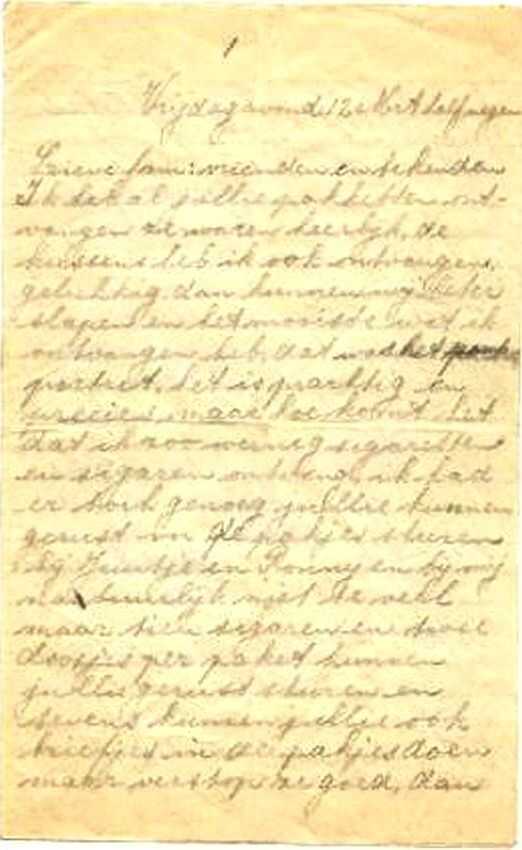 1
Vrijdagavond 12e Mrt
Lieve fam: vrienden en bekenden
Ik heb al jullie pakketten ont-
vangen ze waren heerlijk, de
kussens heb ik ook ontvangen,
gelukkig dan kunnen wij beter
slapen en het mooiste wat ik
ontvangen heb, dat was het
portret, het is prachtig en
precies, maar hoe komt het
dat ik zoo weinig sigaretten
en sigaren ontving, ik had
er toch genoeg jullie kunnen
gerust in de pakjes sturen
bij en Ronny en bij mij
natuurlijk niet te veel
maar tien sigaren en twee
doosjes per paket kunnen
jullie gerust sturen en
tevens kunnen jullie ook
briefjes in de pakjes doen
maar verstop ze goed, dan